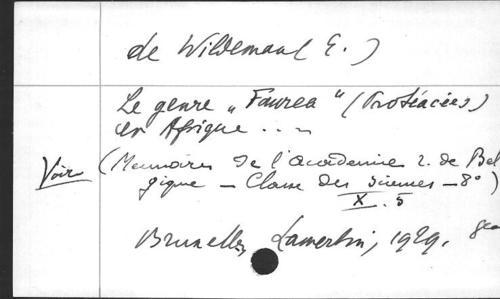 de Wildeman (E.)
Le genre „Faurea" (Protéacées)
en Afrique ...
Voir (Memoires de l'académie r. de Bel
gique — Classe des sciences — 8°)
X. 5
Bruxelles, Lamertin, 1929.